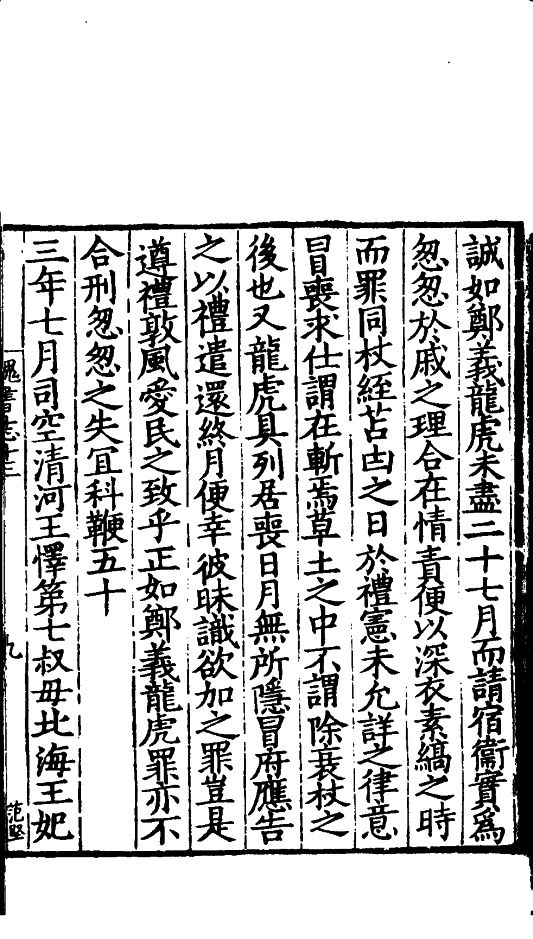 誠如鄭義龍虎未盡二十七月而請宿衞實爲
怱怱於戚之理合在情責便以深衣素縞之時
而罪同杖絰苫凷之日於禮憲未允詳之律意
冒喪求仕謂在斬焉草土之中不謂除衰杖之
後也又龍虎具列居喪日月無所隱冒府應告
之以禮遣還終月便幸彼昧識欲加之罪豈是
遵禮敦風愛民之致乎正如鄭義龍虎罪亦不
合刑怱怱之失冝科鞭五十
三年七月司空清河王懌第七叔母北海王妃
魏書志十三
九
范堅